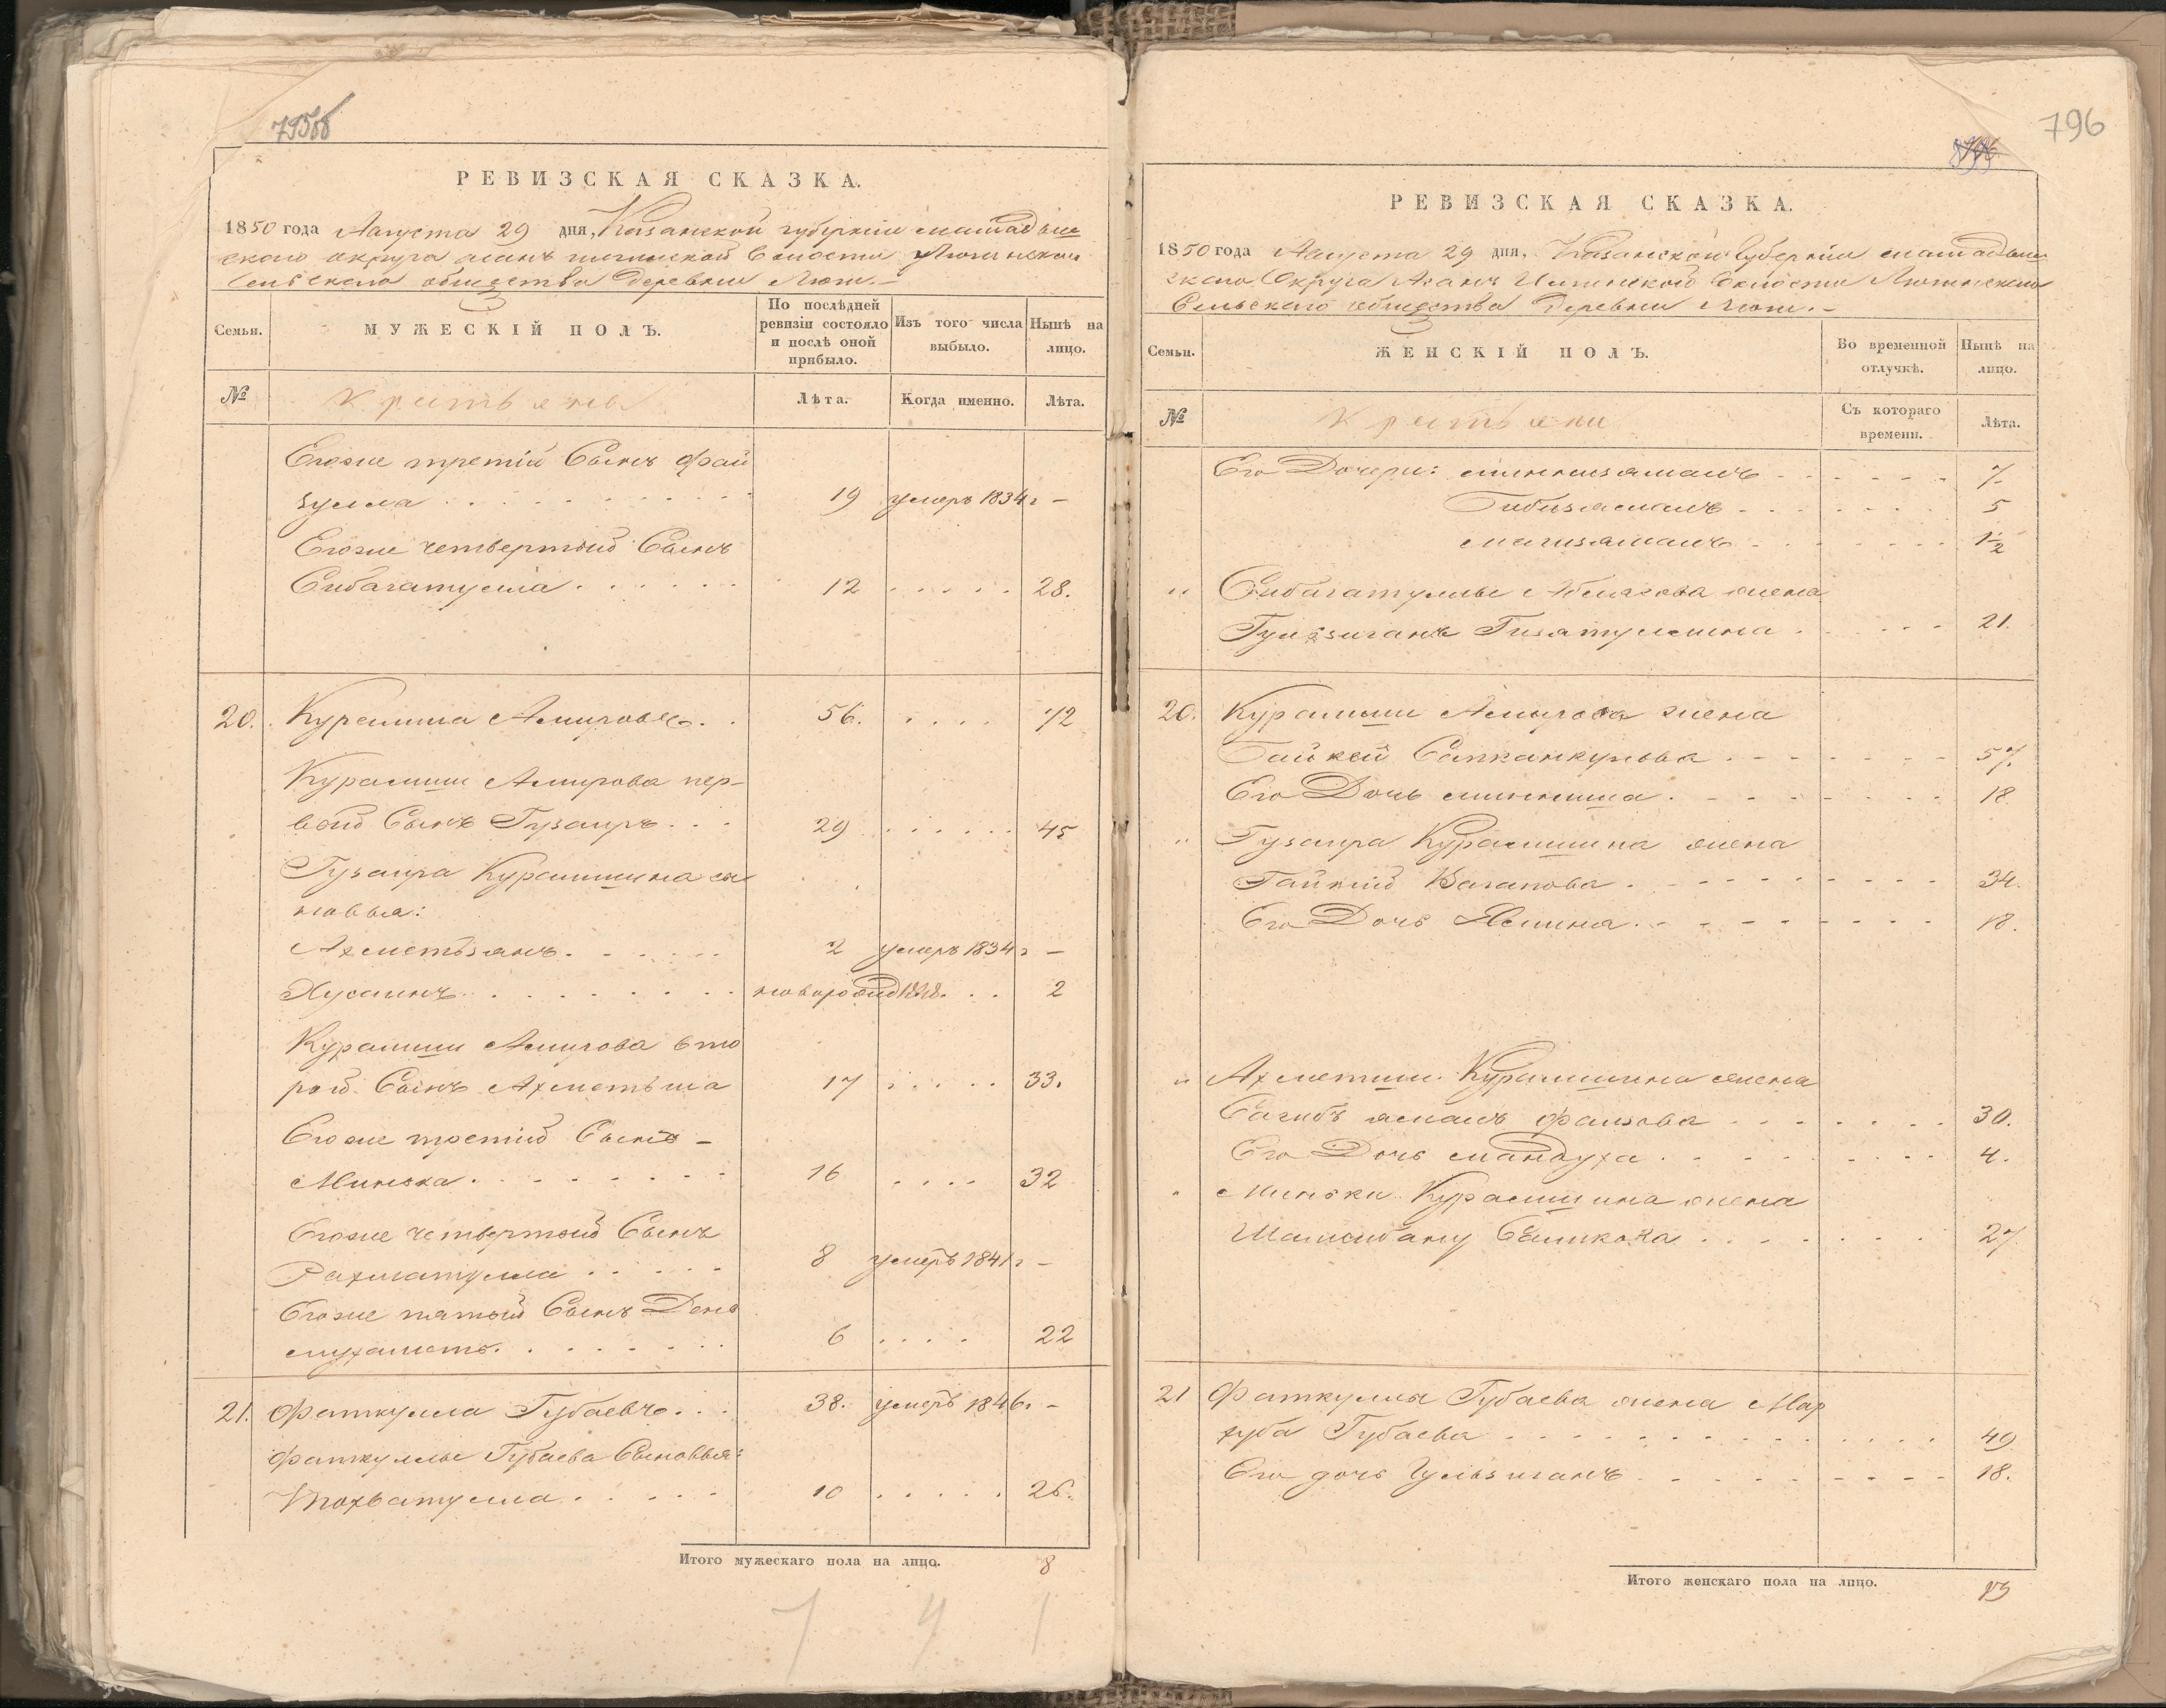 795об
РЕВИЗСКАЯ СКАЗКА.
1850 года Августа 29 дня, Казанской губернии Мамадыш
скаго округа Асанъ Илгинской Волости Люгинскаго
Сельскаго общества Деревни Люги.
Семьи.
МУЖЕСКІЙ ПОЛЪ.
По послѣдней ревизіи состояло и послѣ оной прибыло.
Изъ того числа выбыло.
Нынѣ на лицо.
№
Крестьяне
Лѣта.
Когда именно.
Лѣта.
Егоже третій Сынъ Фай
зулла 19 умеръ 1834 г –
Егоже четвертый Сынъ
Сибагатулла 12 28.
20. Курамша Амировъ 56. 72
Курамши Амирова пер-
вый Сынъ Гузаиръ 29 45
Гузаира Курамшина сы
новья:
Ахметьзянъ 2 умеръ 1834 г –
Хусаинъ новорожд 1848. 2
Курамши Амирова вто
рой Сынъ Ахметьша 17 33.
Егоже третій Сынъ –
Минька 16 32
Егоже четвертый Сынъ
Рахматулла 8 умеръ 1841 г –
Егоже пятый Сынъ Дены
мухаметъ 6 22
21. Фаткулла Губаевъ 38. умеръ 1846. –
Фаткуллы Губаева Сыновья:
Тохватулла 10 26.
Итого мужескаго пола на лицо. 8
7 4 1
796
РЕВИЗСКАЯ СКАЗКА.
1850 года Августа 29 дня, Казанской Губерніи Мамадыш
скаго Округа Асанъ Илгинской Волости Люгинскаго
Сельскаго общества Деревни Люги.
Семьи.
ЖЕНСКІЙ ПОЛЪ.
Во временной отлучкѣ.
Нынѣ на лицо.
№
Крестьяни
Съ котораго времени.
Лѣта.
Его Дочери: Миннизямалъ 7
Бибизямалъ 5
Магизямалъ 1½
" Сибагатуллы Аблязова жена
Гульзиганъ Гизятуллина 21.
20. Курамши Амирова жена
Байкей Сатканкулова 57.
Его Дочь Миннниша 18
" Гузаира Курамшина жена
Гайний Вагапова 34.
Его Дочь Ямина 18.
" Ахметши Курамшина жена
Сагибъ ямалъ Фаизова 30.
Его Дочь Мандуха 4.
" Миньки Курамшина жена
Шамсибану Салимкова 27
21 Фаткуллы Губаева жена Мар
хуба Губаева 49
Его дочь Гульзиганъ 18.
Итого женскаго пола на лицо. 13